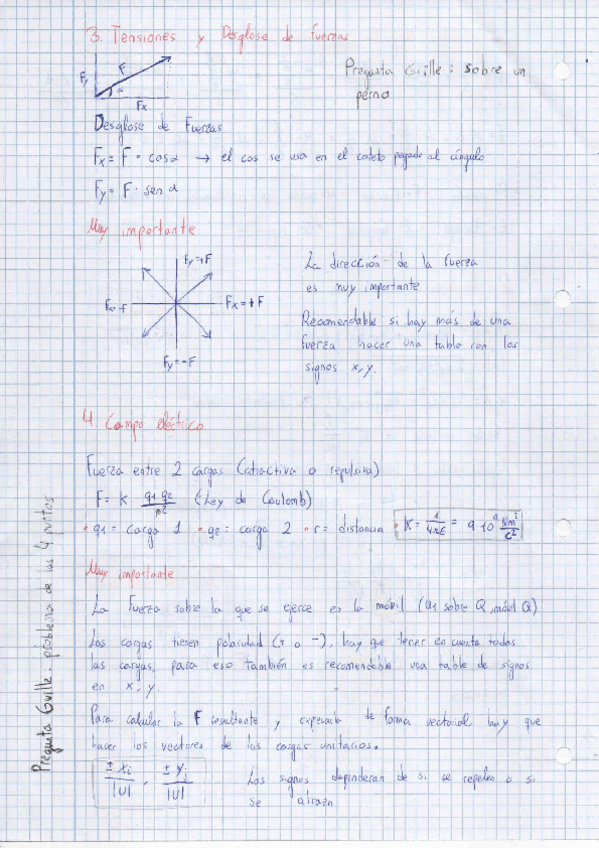 3. Tensiones y Desglose de fuerzas
Fy F α
Fx
Pregunta Guille: sobre un
perno
Desglose de Fuerzas
Fx = F · cosα → el cos se usa en el cateto pegado al ángulo
Fy = F · sen α
Muy importante
Fy=+F
Fx=-F
Fx=+F
Fy=-F
La dirección de la fuerza
es muy importante
Recomendable si hay más de una
fuerza hacer una tabla con los
signos x, y.
4. Campo eléctrico
Fuerza entre 2 cargas (atractiva o repulsiva)
F = K q1 q2 / r² (Ley de Coulomb)
• q1 = carga 1 • q2 = carga 2 • r = distancia • K = 1/4πε = 9·10⁹ Nm²/C²
Muy importante
La Fuerza sobre la que se ejerce es la móvil (q1 sobre Q, móvil Q)
Las cargas tienen polaridad (+ o -), hay que tener en cuenta todas
las cargas, para eso también es recomendable una table de signos
en x, y.
Para calcular la F resultante y expresarla de forma vectorial hay que
hacer los vectores de las cargas unitarios.
± Xi / |U| , ± Yj / |U|
Los signos dependeran de si se repelen o si
se atraen
Pregunta Guille. problema de los 4 puntos